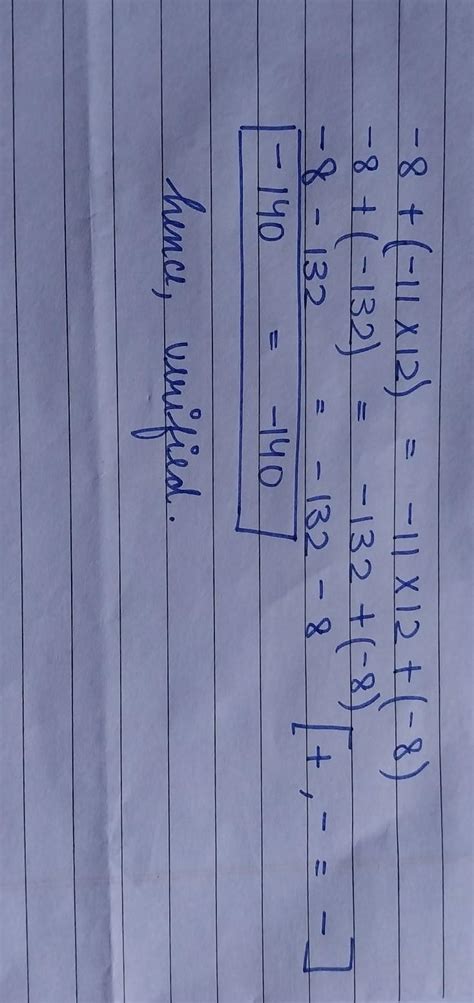 -8 + (-11 × 12) = -11 × 12 + (-8)
-8 + (-132) = -132 + (-8)
-8 - 132 = -132 - 8 [+, - = -]
-140 = -140
hence, verified.